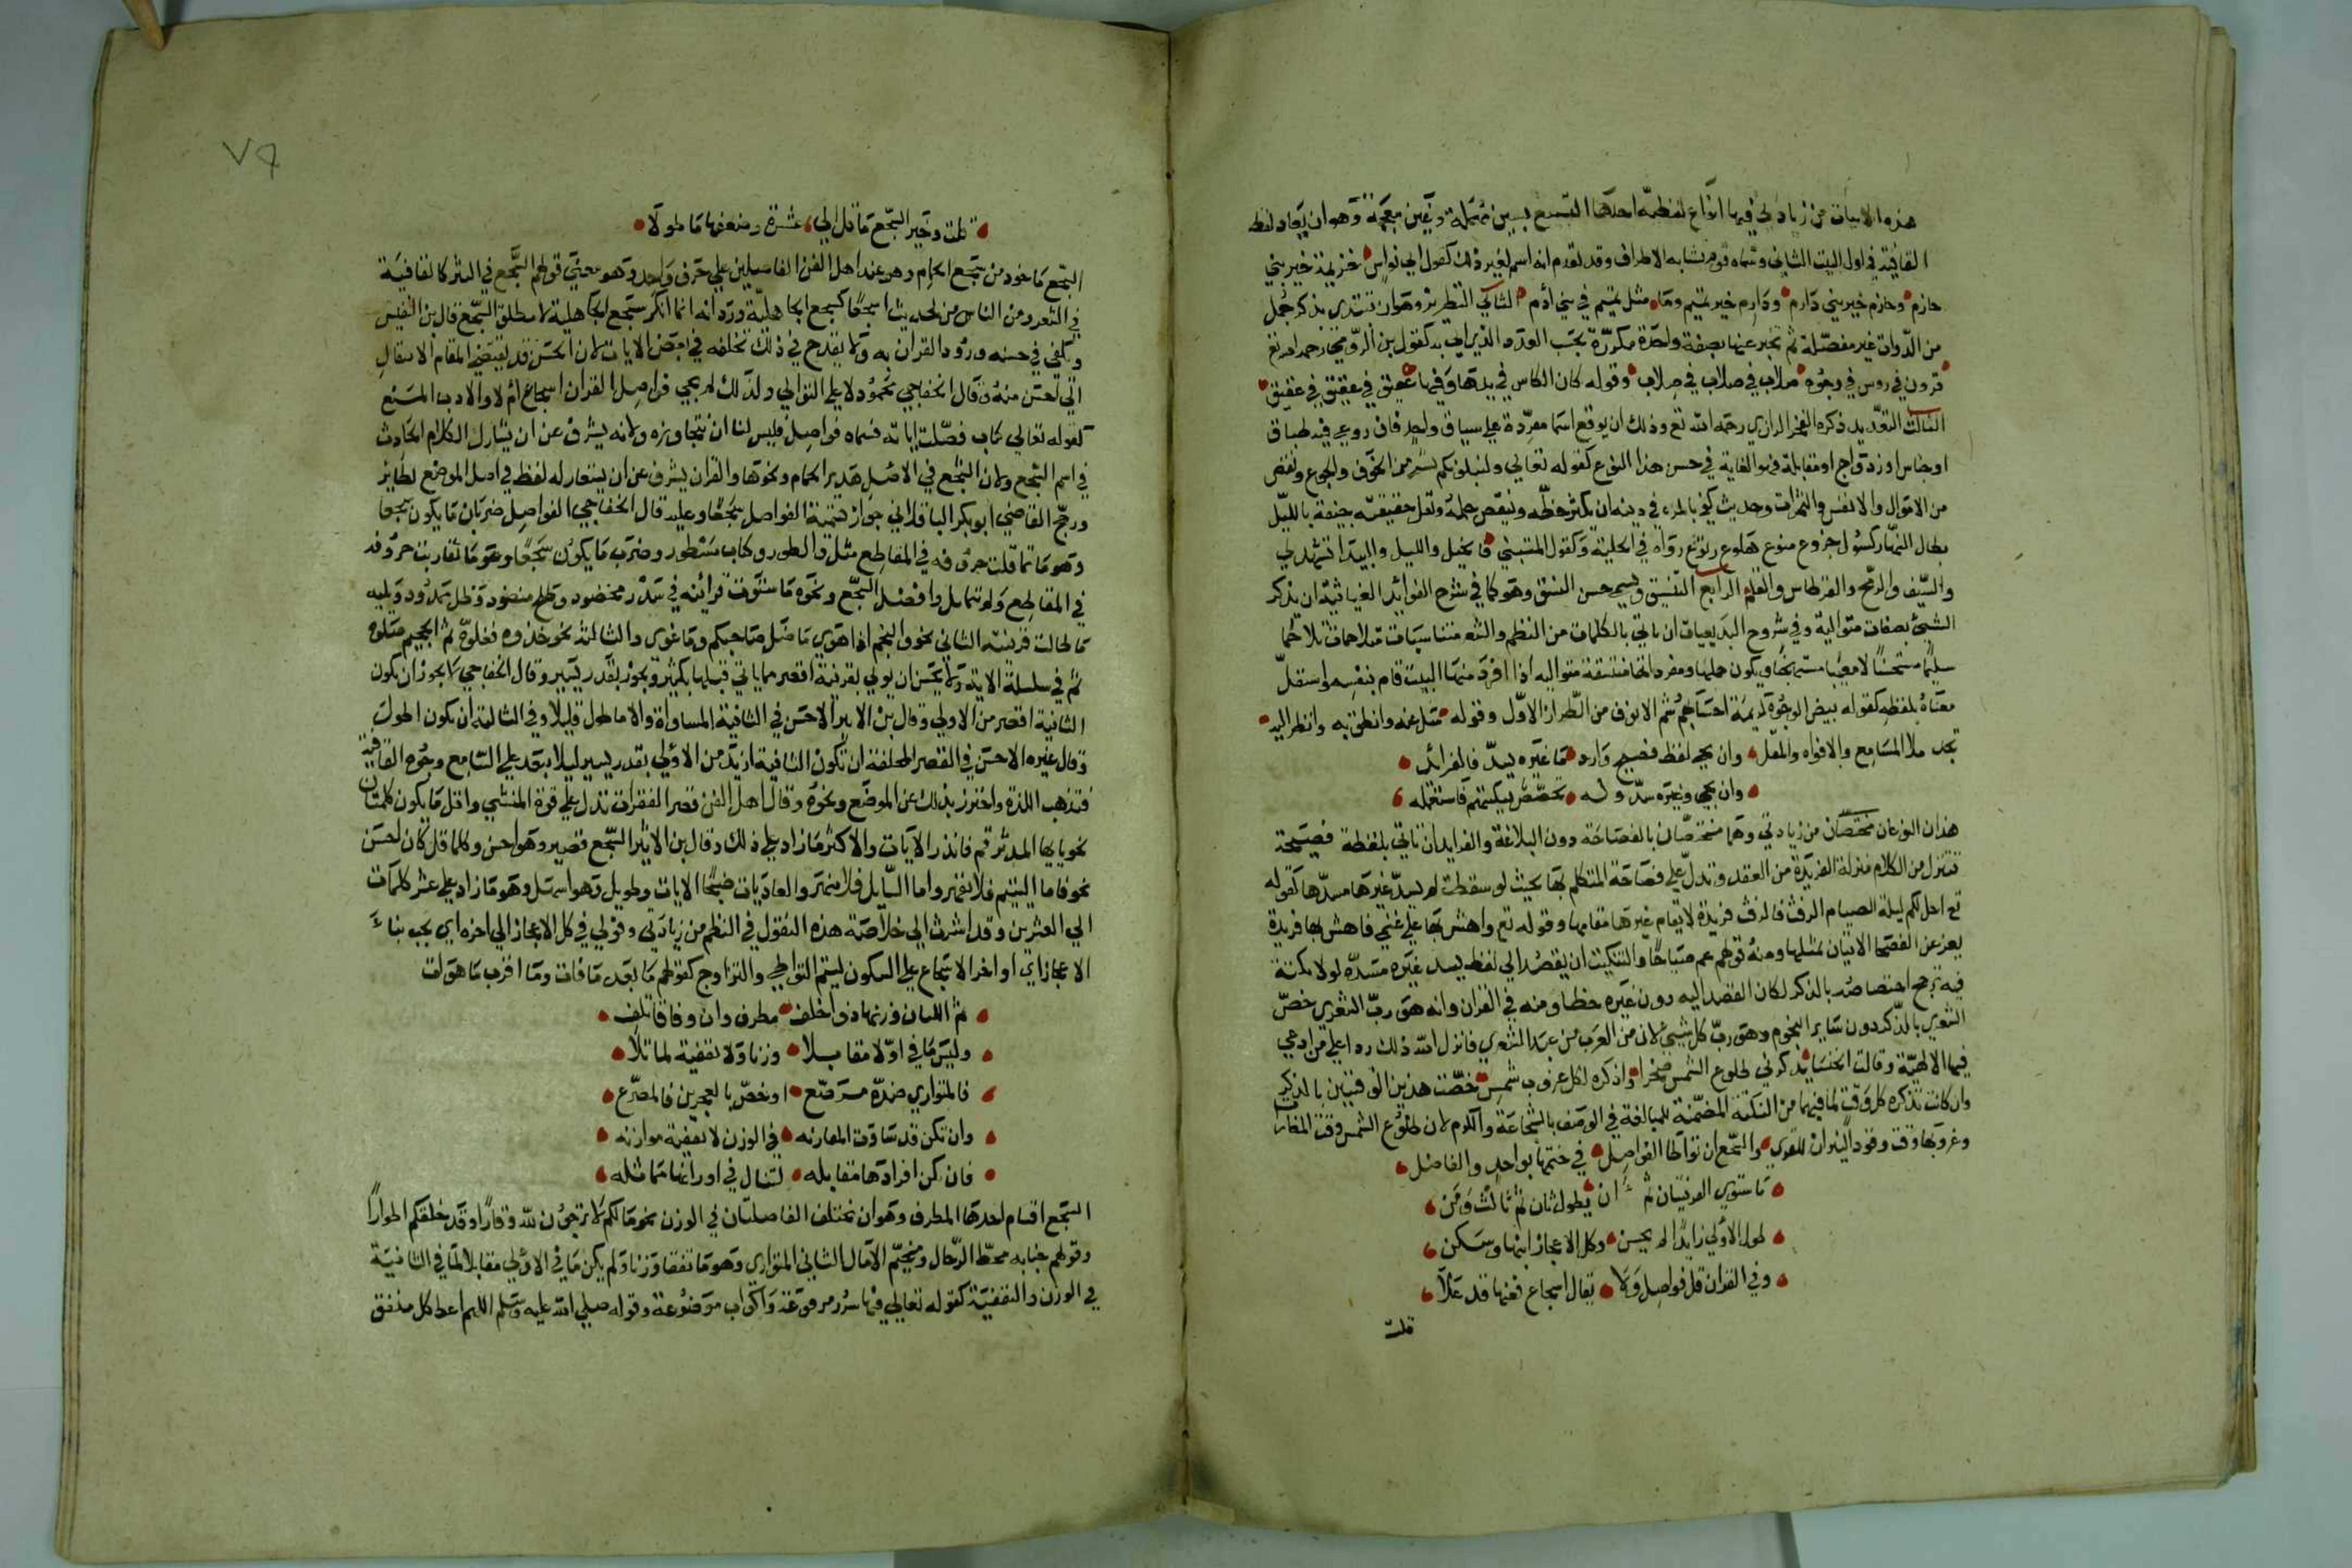 هذه الابيات من زيادتي فيها انواع لفظية احدها التسبيغ بسين مهملة وغين معجمة وهو ان يعاد لفظ
القافية في اول البيت الثاني وسماه قوم تشابه الاطراف وقد تقدم انه اسم لغير ذلك كقول ابي نواس خزيمة خير بني
حازم وحازم خير بني دارم ودارم خير تميم وما مثل تميم في بني ادم الثاني التطريز وهو ان تبتدي بذكر جمل
من الذوات غير مفصلة ثم تخبر عنها بصفة واحدة مكررة بحسب العدد الذي
قرون في روس في وجوه صلاب في صلاب في صلاب وقوله كان الكاس في يدها وفيها عقيق في عقيق في عقيق
الثالث التعديد ذكره الفخر الرازي رحمه الله تع وذلك ان يوقع اسما مفردة علي سياق واحد فان روعي فيه طباق
او جناس او ازدواج او مقابلة فهو الغاية في حسن هذا النوع كقوله تعالي ولنبلونكم بشي من الخوف والجوع ونقص
من الاموال والانفس والثمرات وحديث كفي بالمرء في دينه ان يكثر خطه وينقص حلمه وتقل حقيقته جيفة بالليل
بطال النهار كسول جزوع منوع هلوع رتوع رواه في الحلية وكقول المتنبي فالخيل والليل والبيدا تشهد لي
والسيف والرمح والقرطاس والقلم الرابع التنسيق ويسمي حسن النسق وهو كما في شرح الفوائد الغياثية ان يذكر
الشئ بصفات متوالية وفي شروح البديعيات ان ياتي بالكلمات من النظم والنثر متناسبات متلاحمات تلاحما
سليما مستحسنا لا معيبا مستهجنا ويكون جملها ومفرداتها متسقة متواليه اذا افرد منها البيت قام بنفسه واستقل
معناه بلفظه كقوله بيض الوجوه كريمة احسابهم شم الانوف من الطراز الاول وقوله سل عنه وانطق به وانظر اليه
تجد ملا المسامع والافواه والمقل وان يجي لفظ فصيح وارد ما غيره يسد فالفرائد
وان يجي وغيره سد وله تخصص بنكتة فاستعمله
هذان النوعان مختصان من زيادتي وهما مختصان بالفصاحة دون البلاغة والفرايد ان تاتي بلفظة فصيحة
تتنزل من الكلام منزلة الفريدة من العقد وتدل علي فصاحة المتكلم بها بحيث لو سقطت لم يسد غيرها مسدها كقوله
تع احل لكم ليلة الصيام الرفث فالرفث فريدة لا يقام غيرها مقامها وقوله تع واهش بها علي غنمي فاهش بها فريدة
يعز عن الفصحا الاتيان بمثلها ومنه قولهم عم صباحا والتنكيت ان يقصد الي لفظ يسد غيره مسده لولا نكتة
فيه ترجح اختصاصه بالذكر لكان القصد اليه دون غيره خطا ومنه في القران وانه هو رب الشعري خص
الشعري بالذكر دون ساير النجوم وهو رب كل شئ لان من العرب من عبد الشعري فانزل الله ذلك ردا علي من ادعي
فيها الالهية وقالت الخنسا يذكرني طلوع الشمس صخرا واذكره لكل غروب شمس خصت هذين الوقتين بالذكر
وان كانت تذكره كل وقت لما فيهما من النكتة المتضمنة للمبالغة في الوصف بالشجاعة والكرم لان طلوع الشمس وقت الغارات
وغروبها وقت وقود النيران للقري والسجع ان تواطا الفواصل في ختمها بواحد والفاضل
ما ستوي القرنيتان ثم ان يطول ثان ثم ثالث ومن
طول الاولي زايدا لم يحسن وكل الاعجاز ابنها وسكن
وفي القران قل فواصل ولا يقال اسجاع فعنها قد علا
قلت
٧٩
قلت وخير السجع ما قل الي عشرة وضعفها ما طولا
السجع ماخوذ من سجع الحمام وهو عند اهل الفن الفاصلين علي حرف واحد وهو معني قولهم السجع في النثر كالقافية
في الشعر ومن الناس من لحديث اسجعا كسجع الجاهلية ورد انه انما انكر سجع الجاهلية لا مطلق السجع قال بن النفيس
ويكفي في حسنه ورود القران به ولا يقدح في ذلك تخلفه في بعض الايات لان الحسن قد يقتضي المقام الانتقال
الي احسن منه وقال الخفاجي محمود لا علي التوالي ولذلك لم يجي فواصل القران اسجاع ام لا والادب المنع
كقوله تعالي كتاب فصلت اياته فسماه فواصل فليس لنا ان نتجاوزه ولانه يشرف عن ان يشارك الكلام الحادث
في اسم السجع ولان السجع في الاصل هدير الحمام ونحوها والقران يشرف عن ان يستعار له لفظ في اصل الموضع لطاير
ورجح القاضي ابو بكر الباقلاني جواز تسمية الفواصل سجعا وعليه قال الخفاجي الفواصل ضربان ما يكون سجعا
وهو ما تماثلت حروفه في المقاطع مثل والطور وكتاب مسطور وضرب ما يكون سجعا وهو ما تقاربت حروفه
في المقاطع ولم تتماثل وافضل السجع ونحوه ما ستوت قرائنه في سدر مخضود وطلح منضود وظل ممدود ويليه
ما طالت قرينته الثاني نحو والنجم اذا هوي ما ضل صاحبكم وما غوي والثالثة نحو خذوه فغلوه ثم الجحيم صلوه
ثم في سلسلة الاية ولا يحسن ان يولي بقرينة اقصر مما ياتي قبلها بكثير ويجوز بقدر يسير وقال الخفاجي لا يجوز ان يكون
الثانية اقصر من الاولي وقال بن الاثير الاحسن في الثانية المساواة والا ما طول قليلا وفي الثالثة ان يكون اطول
وقال غيره الاحسن في القصر المختلفة ان تكون الثانية ازيد من الاولي بقدر يسير ليلا يبعد علي السامع وجوه القافية
فتذهب اللذة واحترز بذلك عن الموضع ونحوه وقال اهل الفن قصر الفقرات تدل علي قوة المنشي واقل ما يكون كلمتان
نحو يايها المدثر قم فانذر الايات والاكثر ما زاد علي ذلك وقال بن الاثير السجع قصير وهو احسن وكلما قل كان احسن
نحو فاما اليتيم فلا تقهر واما السايل فلا تنهر والعاديات ضبحا الايات وطويل وهو اسهل وهو ما زاد علي عشر كلمات
الي العشرين وقد اشرت الي خلاصة هذه النقول في النظم من زيادتي وقولي في كل الاعجاز الي اخره اي يجب بناء
الاعجاز اي اواخر الاسجاع علي السكون ليتم التواطي والتزاوج كقولهم ما ابعد ما فات وما اقرب ما هو ات
ثم اللتان وزنها ذو اختلف مطرف وان وفاقا تلف
وليس ما في اولا مقابلا وزنا ولا تقفية لما تلا
فالمتوازي ضده مرصع او نخص بالعجزين فالمصرع
وان تكن قد ساوت المقارنه في الوزن لا تقفية موازنه
فان تكن افرادها مقابله لتال في اوزانها مماثله
السجع اقسام احدها المطرف وهو ان تختلف الفاصلتان في الوزن نحو ما لكم لا ترجون لله وقارا وقد خلقكم اطوارا
وقولهم جنابه محط الرحال ومخيم الامال الثاني المتوازي وهو ما تفقا وزنا ولم يكن ما في الاولي مقابلا لما في الثانية
في الوزن والتقفية كقوله تعالي فيها سرر مرفوعة واكواب موضوعة وقوله صلي الله عليه وسلم اللهم اعط كل منفق